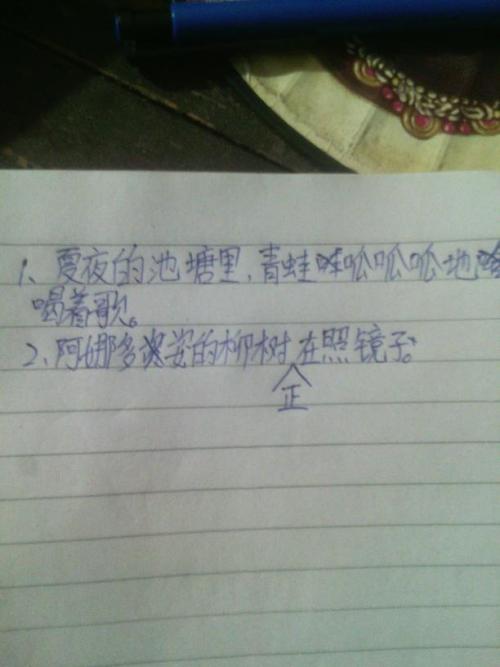 1、夏夜的池塘里，青蛙呱呱呱地
喝着歌。
2、阿娜多姿的柳树正在照镜子。